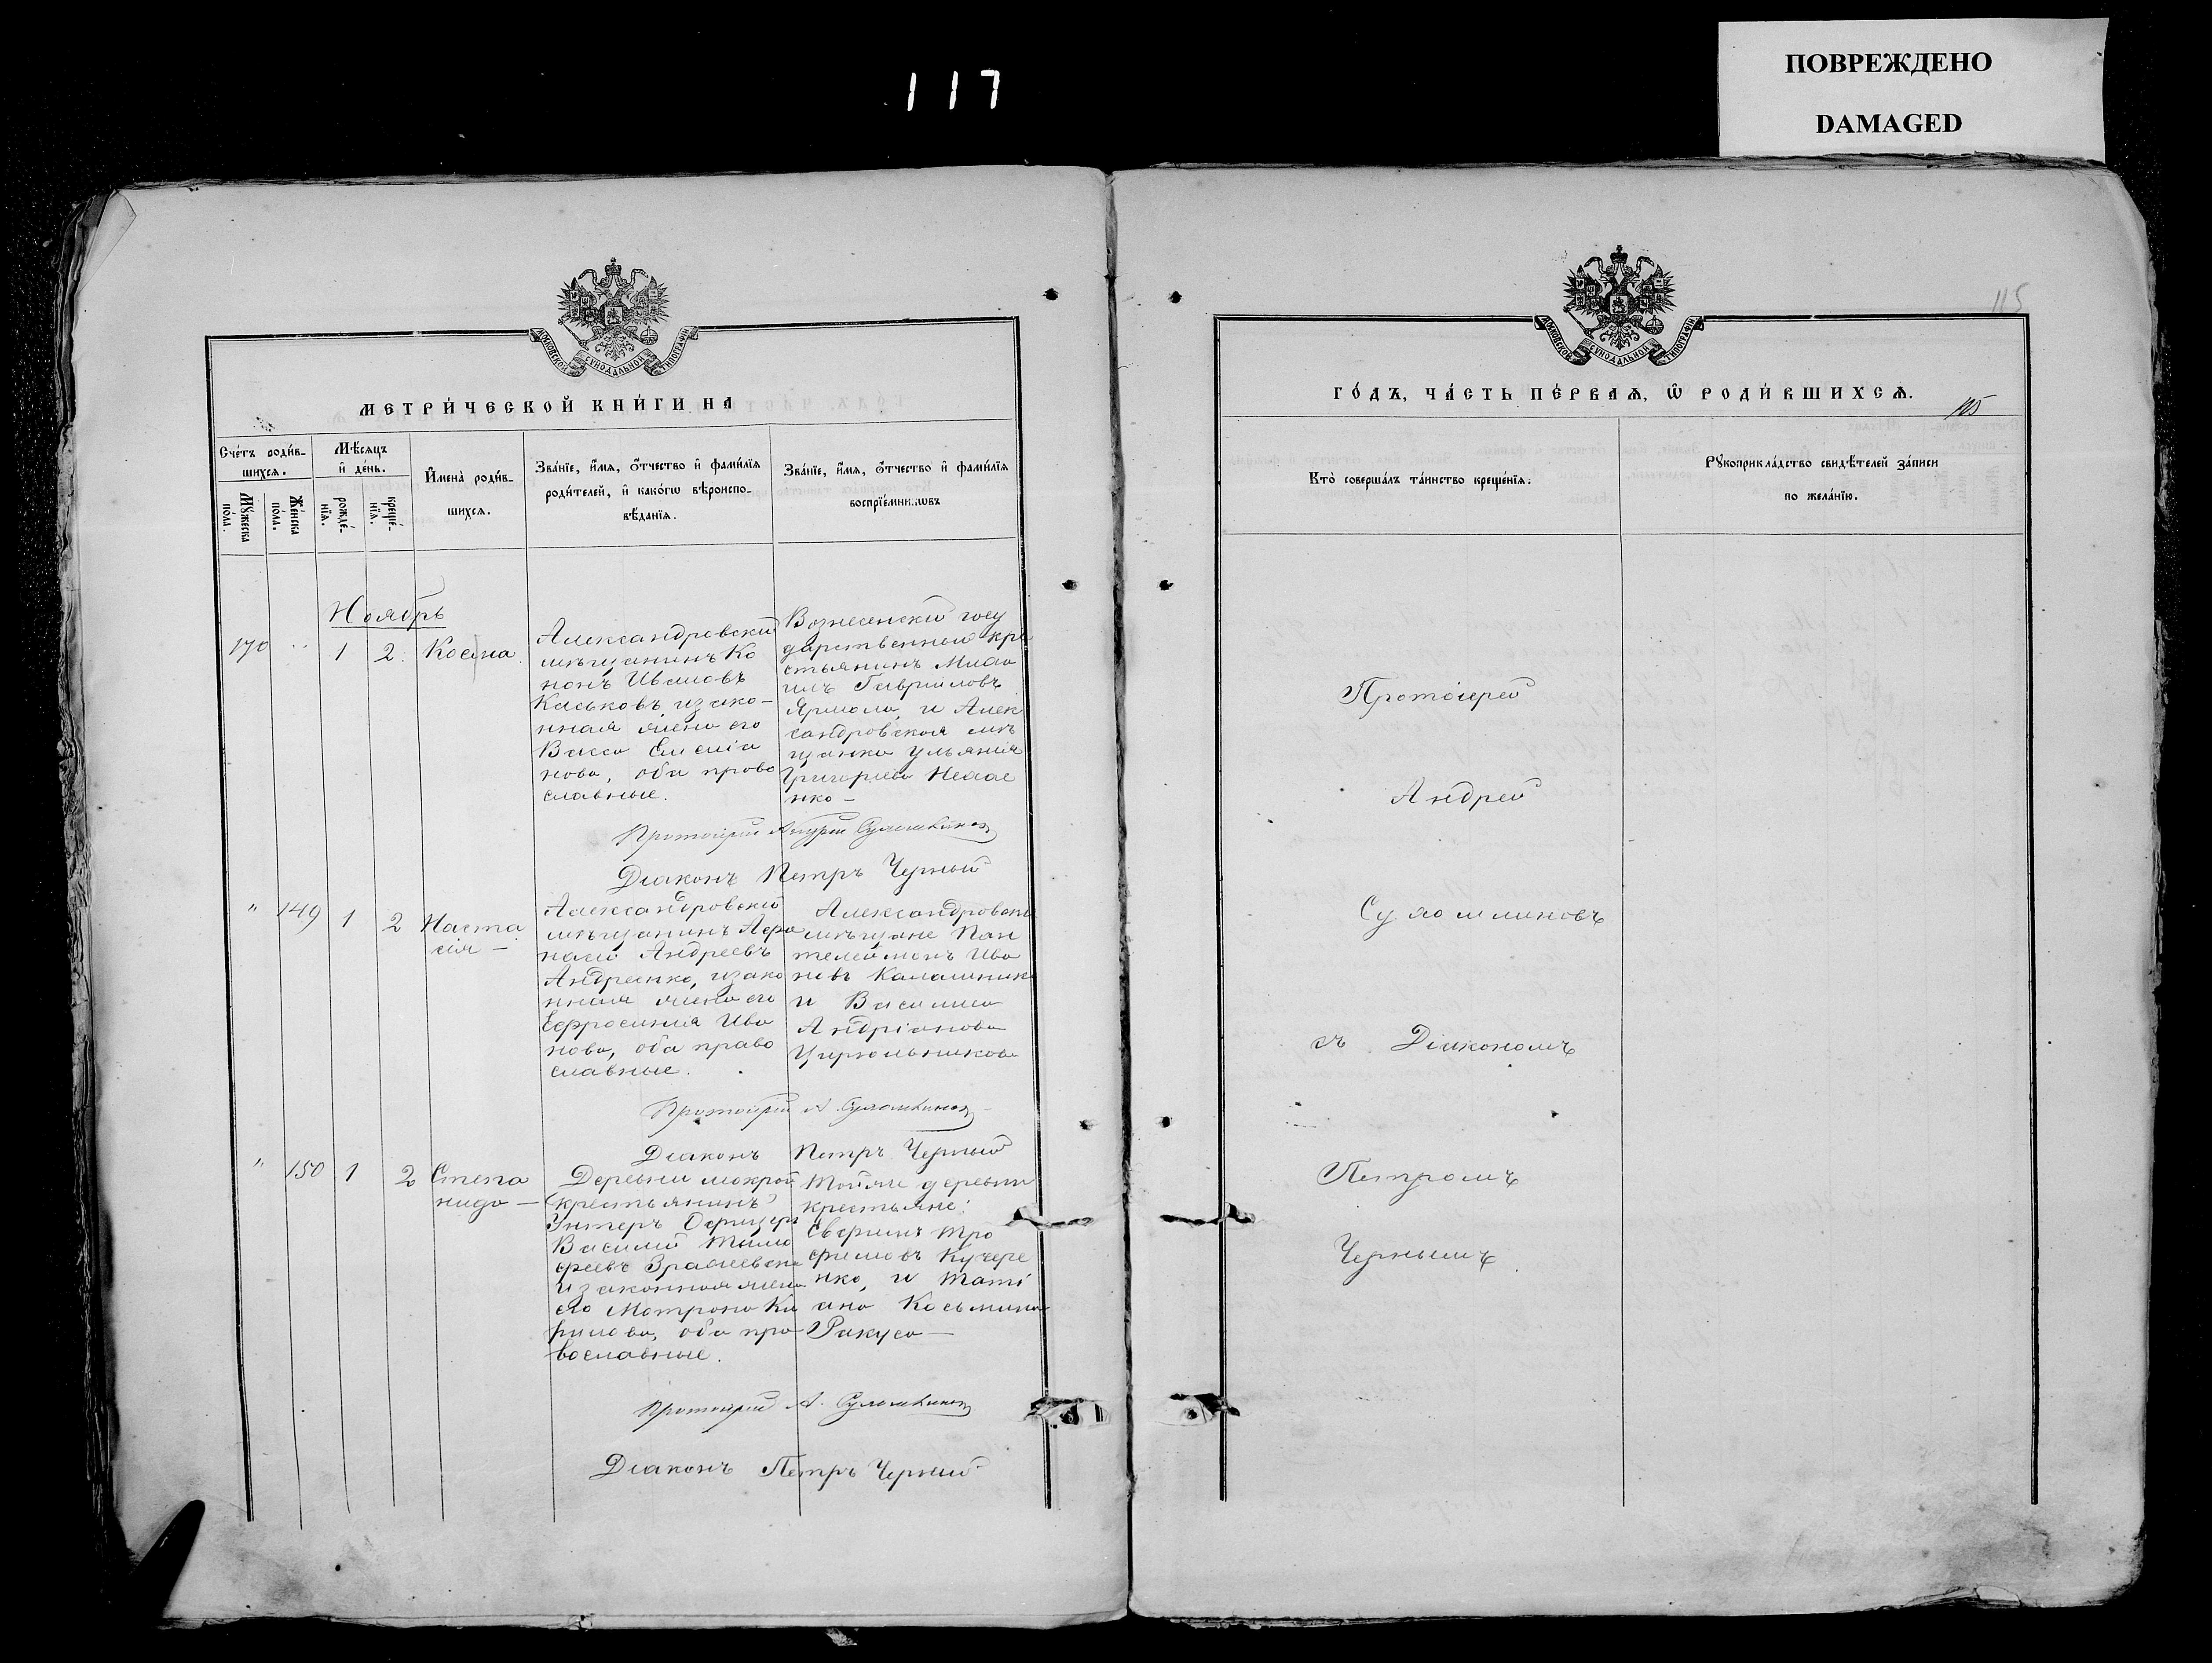 117
ПОВРЕЖДЕНО
DAMAGED
МОСКОВСКОЙ СУНОДАЛЬНОЙ ТИПОГРАФІИ
МЕТРИ́ЧЕСКОЙ КНИ́ГИ НА
Сче́тъ роди́в-
шихсѧ.
Мѣ́сѧцъ
и҆ де́нь.
Мꙋ́жеска
по́ла.
Же́нска
по́ла.
рожде́-
нїѧ.
креще́-
нїѧ.
И҆мена̀ роди́в-
шихсѧ.
Зва́нїе, и҆́мѧ, ѻ҆́тчество и҆ фами́лїѧ
роди́телей, и҆ како́гѡ вѣроиспо-
вѣ́данїѧ.
Зва́нїе, и҆́мѧ, ѻ҆́тчество и҆ фами́лїѧ
воспрїе́мниковъ
Ноябрь
170 " 1 2. Косма
Александровскій
мѣщанинъ Ко
нонъ Ивановъ
Каськовъ и зако-
нная жена его
Васса Емелiа
нова, оба право
славные.
Вознесенскій госу
дарственный кре
стьянинъ Миха
илъ Гавриловъ
Ярмола, и Алек
сандровская мѣ
щанка Ульянія
Григорьева
нко —
Протоіерей Андрей Сухомлиновъ
Діаконъ Петръ Черный
" 149 1 2 Наста
сія —
Александровскій
мѣщанинъ Афа
насій Андреевъ
Андреенко, и зако
нная жена его
Ефросинія Ива
нова, оба право
славные.
Александровскіе
мѣщане Пан
телеймонъ Ива
новъ Калашник
и Василиса
Андріанова
Цирюльникова
Протоіерей А. Сухомлиновъ
Діаконъ Петръ Черный
" 150 1 2 Степа
нида —
Деревни мокрой
крестьянинъ
Унтеръ Офицеръ
Василій Тимо
феевъ
и законная жена
его Матрона Ки
рилова, оба пра-
вославные.
Тойже деревни
крестьяне:
Тро
фимовъ Кучере
нко, и Таті
ана Косьмина
Ракуса —
Протоіерей А. Сухомлиновъ
Діаконъ Петръ Черный
115
МОСКОВСКОЙ СУНОДАЛЬНОЙ ТИПОГРАФІИ
ГО́ДЪ, ЧА́СТЬ ПЕ́РВАѦ, Ѡ҆ РОДИ́ВШИХСѦ.
115
Кто̀ соверша́лъ та́инство креще́нїѧ.
Рꙋкоприкла́дство свидѣ́телей за́писи
по жела́нїю.
Протоіерей
Андрей
Сухомлиновъ
съ Діакономъ
Петромъ
Чернымъ